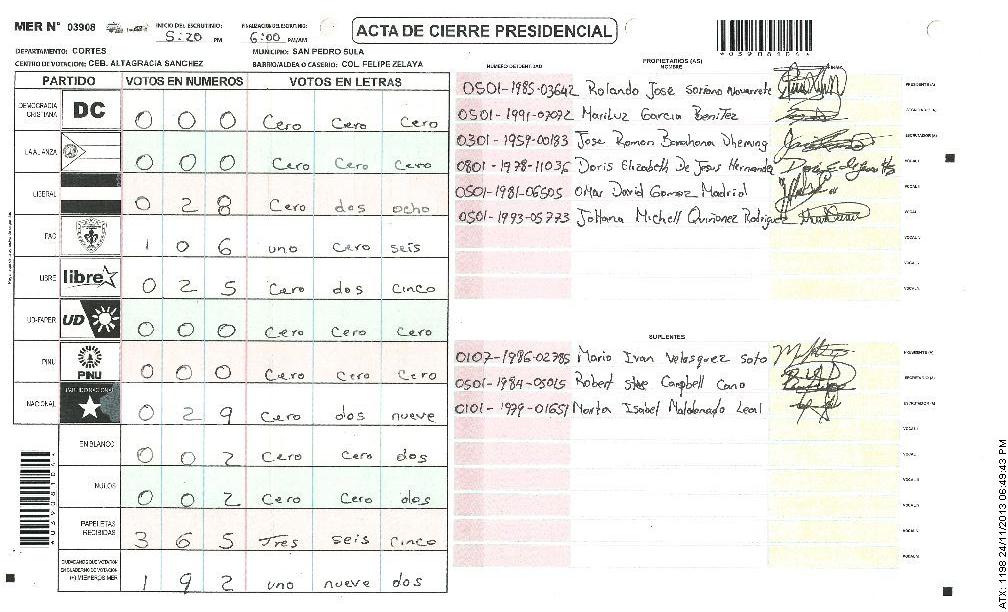 MER N° 03908
INICIO DEL ESCRUTINIO: 5:20 PM
FINALIZACION DEL ESCRUTINIO: 6:00 PM/AM
ACTA DE CIERRE PRESIDENCIAL
*03908104*
DEPARTAMENTO: CORTES
MUNICIPIO: SAN PEDRO SULA
CENTRO DE VOTACION: CEB. ALTAGRACIA SANCHEZ
BARRIO/ALDEA O CASERIO: COL. FELIPE ZELAYA
PARTIDO VOTOS EN NUMEROS VOTOS EN LETRAS
DEMOCRACIA CRISTIANA DC 0 0 0 Cero Cero Cero
LA ALIANZA 0 0 0 Cero Cero Cero
LIBERAL 0 2 8 Cero dos ocho
PAC 1 0 6 uno Cero seis
LIBRE libre 0 2 5 Cero dos cinco
UD-FAPER UD 0 0 0 Cero Cero Cero
PINU PINU 0 0 0 Cero Cero Cero
NACIONAL PARTIDO NACIONAL 0 2 9 Cero dos nueve
EN BLANCO 0 0 2 Cero Cero dos
NULOS 0 0 2 Cero Cero dos
PAPELETAS RECIBIDAS 3 6 5 Tres seis cinco
CIUDADANOS QUE VOTARON EN CUADERNO DE VOTACION (+) MIEMBROS MER 1 9 2 uno nueve dos
*03908104*
PROPIETARIOS (AS)
NUMERO DE IDENTIDAD NOMBRE FIRMA
0501-1985-03642 Rolando Jose Soriano Navarrete PRESIDENTE (A)
0501-1991-07092 Mariluz Garcia Benitez SECRETARIO (A)
0301-1959-00183 Jose Ramon Barahona Dheming ESCRUTADOR (A)
0801-1978-11036 Doris Elizabeth De Jesus Hernandez VOCAL I
0501-1981-06505 Omar David Gomez Madrid VOCAL II
0501-1993-05773 Johana Michell Quiñonez Rodriguez VOCAL
SUPLENTES
0107-1986-02785 Mario Ivan Velasquez Soto PRESIDENTE (A)
0501-1984-05015 Robert Campbell Cano SECRETARIO (A)
0101-1979-01651 Marta Isabel Maldonado Leal ESCRUTADOR (A)
ATX: 1198 24/11/2013 06:49:43 PM